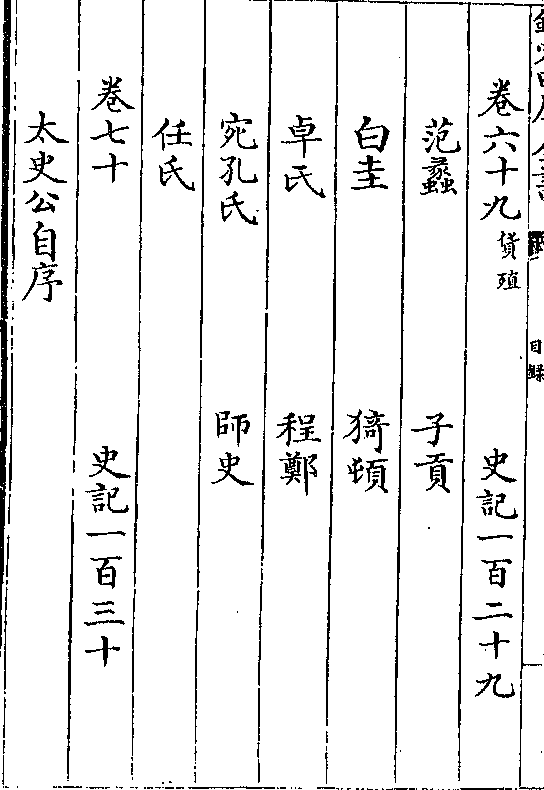 卷六十九 貨殖 史記一百二十九
范蠡 子貢
白圭 猗頓
卓氏 程鄭
宛孔氏 師史
任氏
卷七十 史記一百三十
太史公自序
目錄